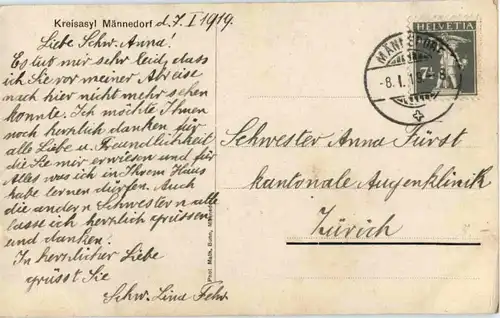 Kreisasyl Männedorf d. 7. I 1919.
Liebe Schw. Anna!
Es tut mir sehr leid, dass
ich Sie vor meiner Abreise
nach hier nicht mehr sehen
konnte. Ich möchte Ihnen
noch herzlich danken für
alle Liebe u. Freundlichkeit
die Sie mir erwiesen und für
Alles was ich in Ihrem Haus
habe lernen dürfen. Auch
die andern Schwestern alle
lasse ich herzlich grüssen
und danken.
In herzlicher Liebe
grüsst Sie
Schw. Lina Fehr
Phot. Männedorf
HELVETIA
7½
MÄNNEDORF
-8. I. 19
Schwester Anna Fürst
kantonale Augenklinik
Zürich